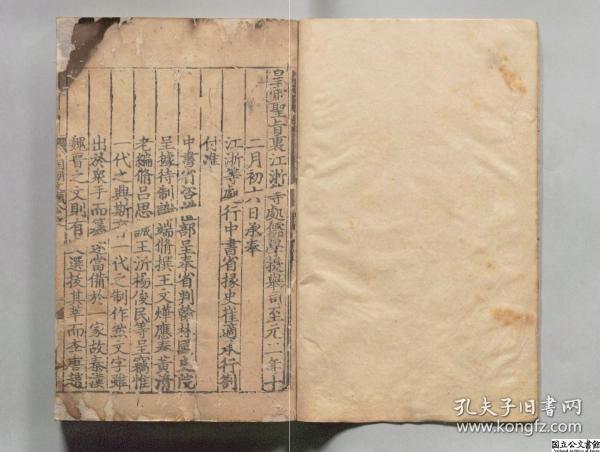 皇帝聖旨裏江浙等處儒學提舉司至元二年十
二月初六日承奉
江浙等處行中書省掾史崔適承行劄
付准
中書省咨 部呈奉省判翰林國史院
呈據待制謝端脩撰王文燁應奉黄清
老編脩吕思誠王沂楊俊民等呈竊惟
一代之興斯 一代之制作然文字雖
出於衆手而 當備於一家故秦漢
魏晋之文則有 選拔其萃而李唐趙
孔夫子旧書网
www.kongfz.com
国立公文書館
National Archives of Japan